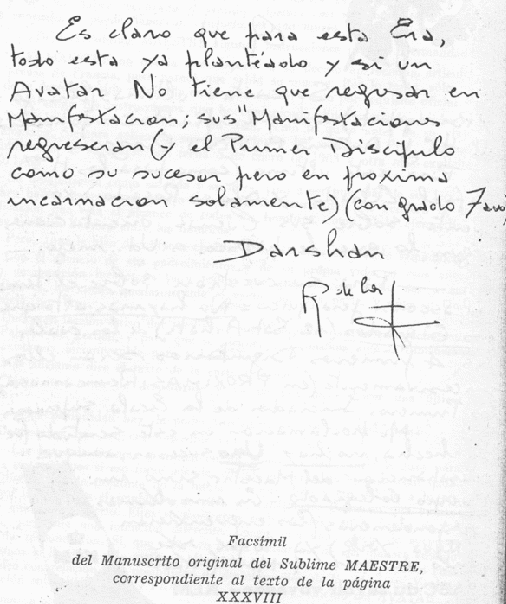 Es claro que para esta Era,
todo esta ya planteado y si un
Avatar No tiene que regresar en
Manifestacion; sus "Manifestaciones
regresaran (y el Primer Discipulo
como su sucesor pero en proxima
incarnacion solamente) (con grado 7
Darshan
R de la
Facsímil
del Manuscrito original del Sublime MAESTRE,
correspondiente al texto de la página
XXXVIII